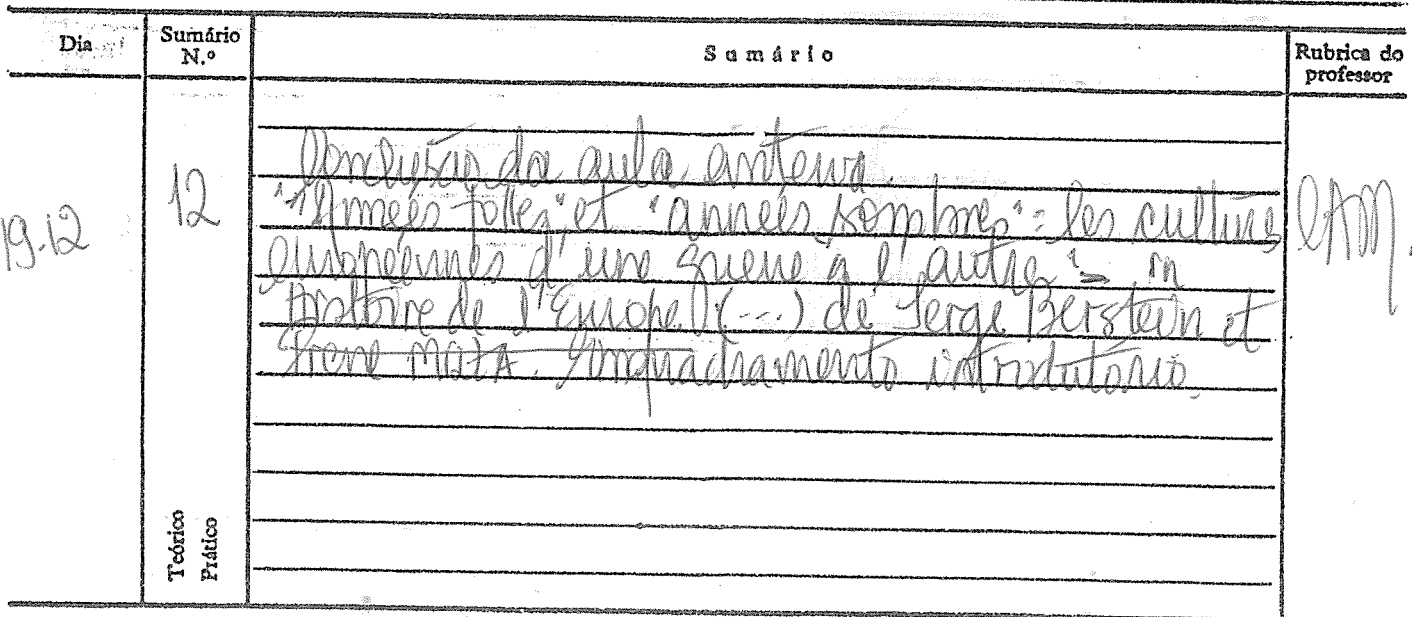 Dia
Sumário N.º
Sumário
Rubrica do professor
19-12
12
Conclusão da aula anterior.
"Années folles" et "années sombres": les cultures
européennes d'une guerre à l'autre" - in
Histoire de l'Europe (...) de Serge Berstein et
Milza. Enquadramento introdutório.
Teórico
Prático